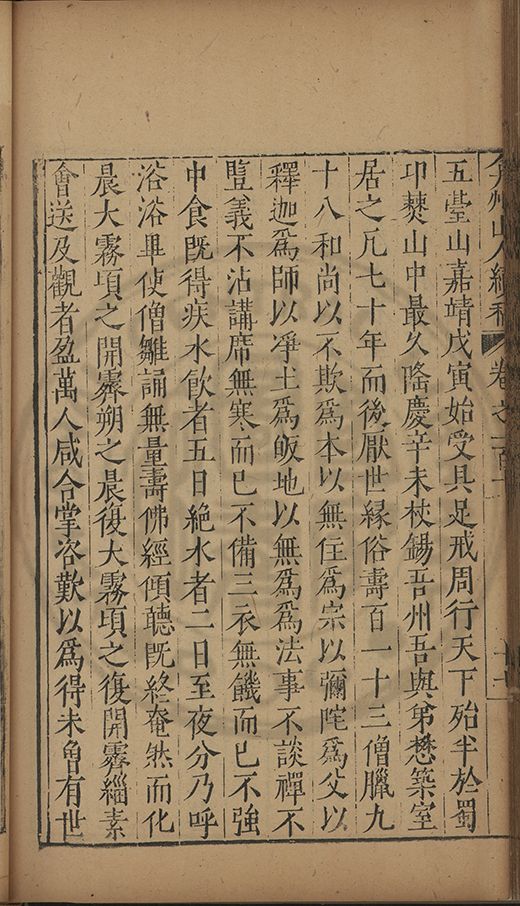 弇州山人續稿 卷之一百十
五臺山嘉靖戊寅始受具足戒周行天下殆半於蜀
卭㸑山中最久隆慶辛未杖錫吾州吾與弟懋築室
居之凡七十年而後厭世緣俗壽百一十三僧臘九
十八和尚以不欺爲本以無住爲宗以彌陀爲父以
釋迦爲師以淨土爲皈地以無爲爲法事不談禪不
豎義不沾講席無寒而已不備三衣無饑而已不強
中食既得疾水飲者五日絕水者二日至夜分乃呼
浴浴畢使僧雛誦無量壽佛經傾聽既終奄然而化
晨大霧頃之開霽朔之晨復大霧頃之復開霽緇素
會送及觀者盈萬人咸合掌咨歎以爲得未曾有世